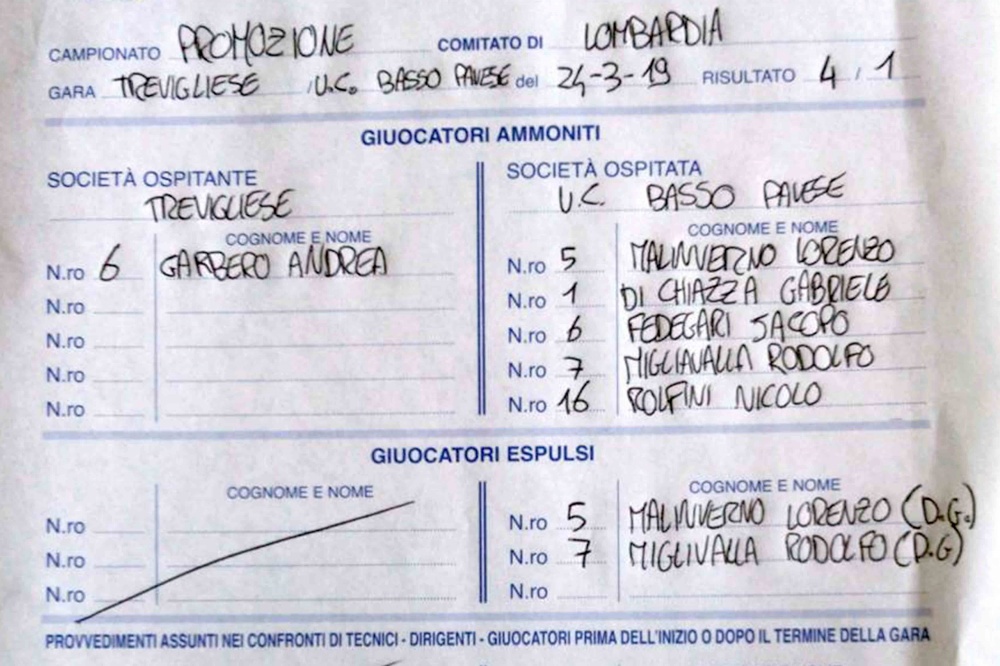 CAMPIONATO PROMOZIONE COMITATO DI LOMBARDIA
GARA TREVIGLIESE / U.C. BASSO PAVESE del 24-3-19 RISULTATO 4 / 1
GIUOCATORI AMMONITI
SOCIETÀ OSPITANTE
TREVIGLIESE
COGNOME E NOME
N.ro 6 GARBERO ANDREA
N.ro
N.ro
N.ro
N.ro
SOCIETÀ OSPITATA
U.C. BASSO PAVESE
COGNOME E NOME
N.ro 5 MALINVERNO LORENZO
N.ro 1 DI CHIAZZA GABRIELE
N.ro 6 FEDEGARI JACOPO
N.ro 7 MIGLIAVALLA RODOLFO
N.ro 16 ROLFINI NICOLO
GIUOCATORI ESPULSI
COGNOME E NOME
N.ro
N.ro
N.ro
COGNOME E NOME
N.ro 5 MALINVERNO LORENZO (D.G.)
N.ro 7 MIGLIVALLA RODOLFO (D.G)
N.ro
PROVVEDIMENTI ASSUNTI NEI CONFRONTI DI TECNICI - DIRIGENTI - GIUOCATORI PRIMA DELL'INIZIO O DOPO IL TERMINE DELLA GARA